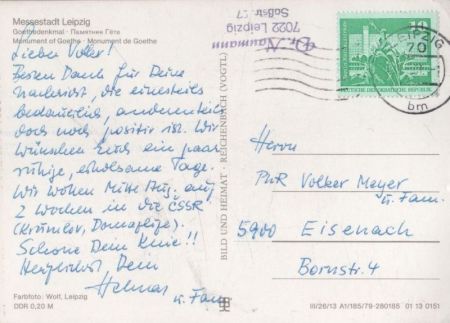 Messestadt Leipzig
Goethedenkmal · Памятник Гёте
Monument of Goethe · Monument de Goethe
Lieber Volker!
Besten Dank für Deine
Nachricht, die einesteils
bedauerlich, andernteils
doch noch positiv ist. Wir
wünschen Euch ein paar
ruhige, erholsame Tage.
Wir wollen Mitte Aug. auf
2 Wochen in die ČSSR
Schone Dein Knie!!
Herzlichst, Dein
Helmar
u. Fam.
Farbfoto: Wolf, Leipzig
DDR 0,20 M
BILD UND HEIMAT · REICHENBACH (VOGTL)
Dr. Naumann
7022 Leipzig
10
DEUTSCHE DEMOKRATISCHE REPUBLIK
LEIPZIG
70
bm
Herrn
Volker Meyer
u. Fam.
5900 Eisenach
Bornstr. 4
III/26/13 A1/185/79-280185 01 13 0151